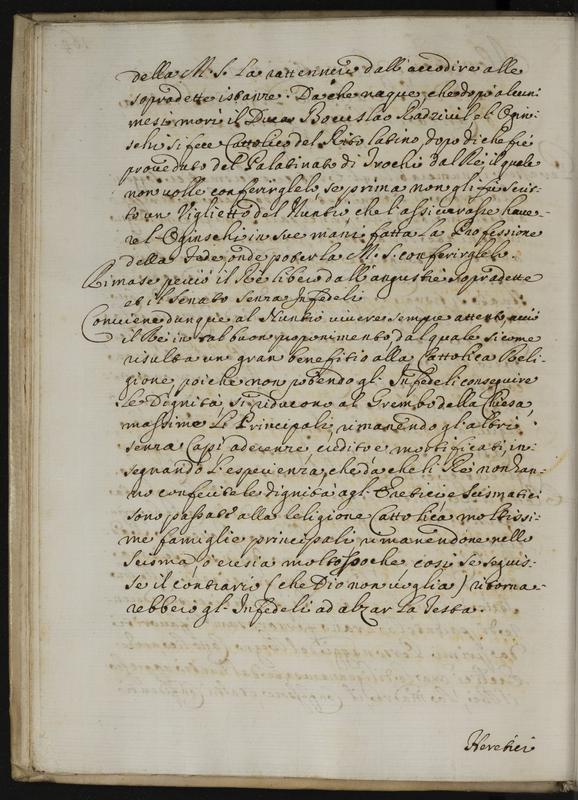 della M. S. la rattennero dall'accodire alle
sopradette istanze. Da che naque che dopo alcuni
mesi morì il Duca Boguslao Radzivil el' Ogin-
schi si fece Cattolico del Rito latino, dopo di che fù
proveduto del Palatinato di Trochi dal Rè, il quale
non volle conferirglelo, se prima non gli fù scrit-
to un Viglietto dal Nuntio che l'assicurasse have-
re l'Oginschi in sue mani fatta la Professione
della fede, onde poter la M. S. conferirglelo.
Rimase perciò il Rè libero dall'angustie sopradette
et il Senato senza Infedeli
Conviene dunque al Nuntio vivere sempre attento, acciò
il Rè in tal buon proponimento, dal quale si come
risulta un gran benefitio alla Cattolica Reli-
gione, poiche non potendo gl' Infedeli conseguire
le Dignità, si riducono al Grembo della Chiesa,
massime li Principali, rimanendo gl'altri
senza Capi, aderenze, credito e mortificati, in-
segnando l'esperienza, che da che li Rè non han-
no conferite le dignità agl' Eretici e Scismatici
sono passate alla Religione Cattolica moltissi-
me famiglie principali rimanendone nello
scisma, ò eresia molto poche, così se seguis-
se il contrario (che Dio non voglia) ritorna-
rebbero gl' Infedeli ad alzar la testa.
Heretici